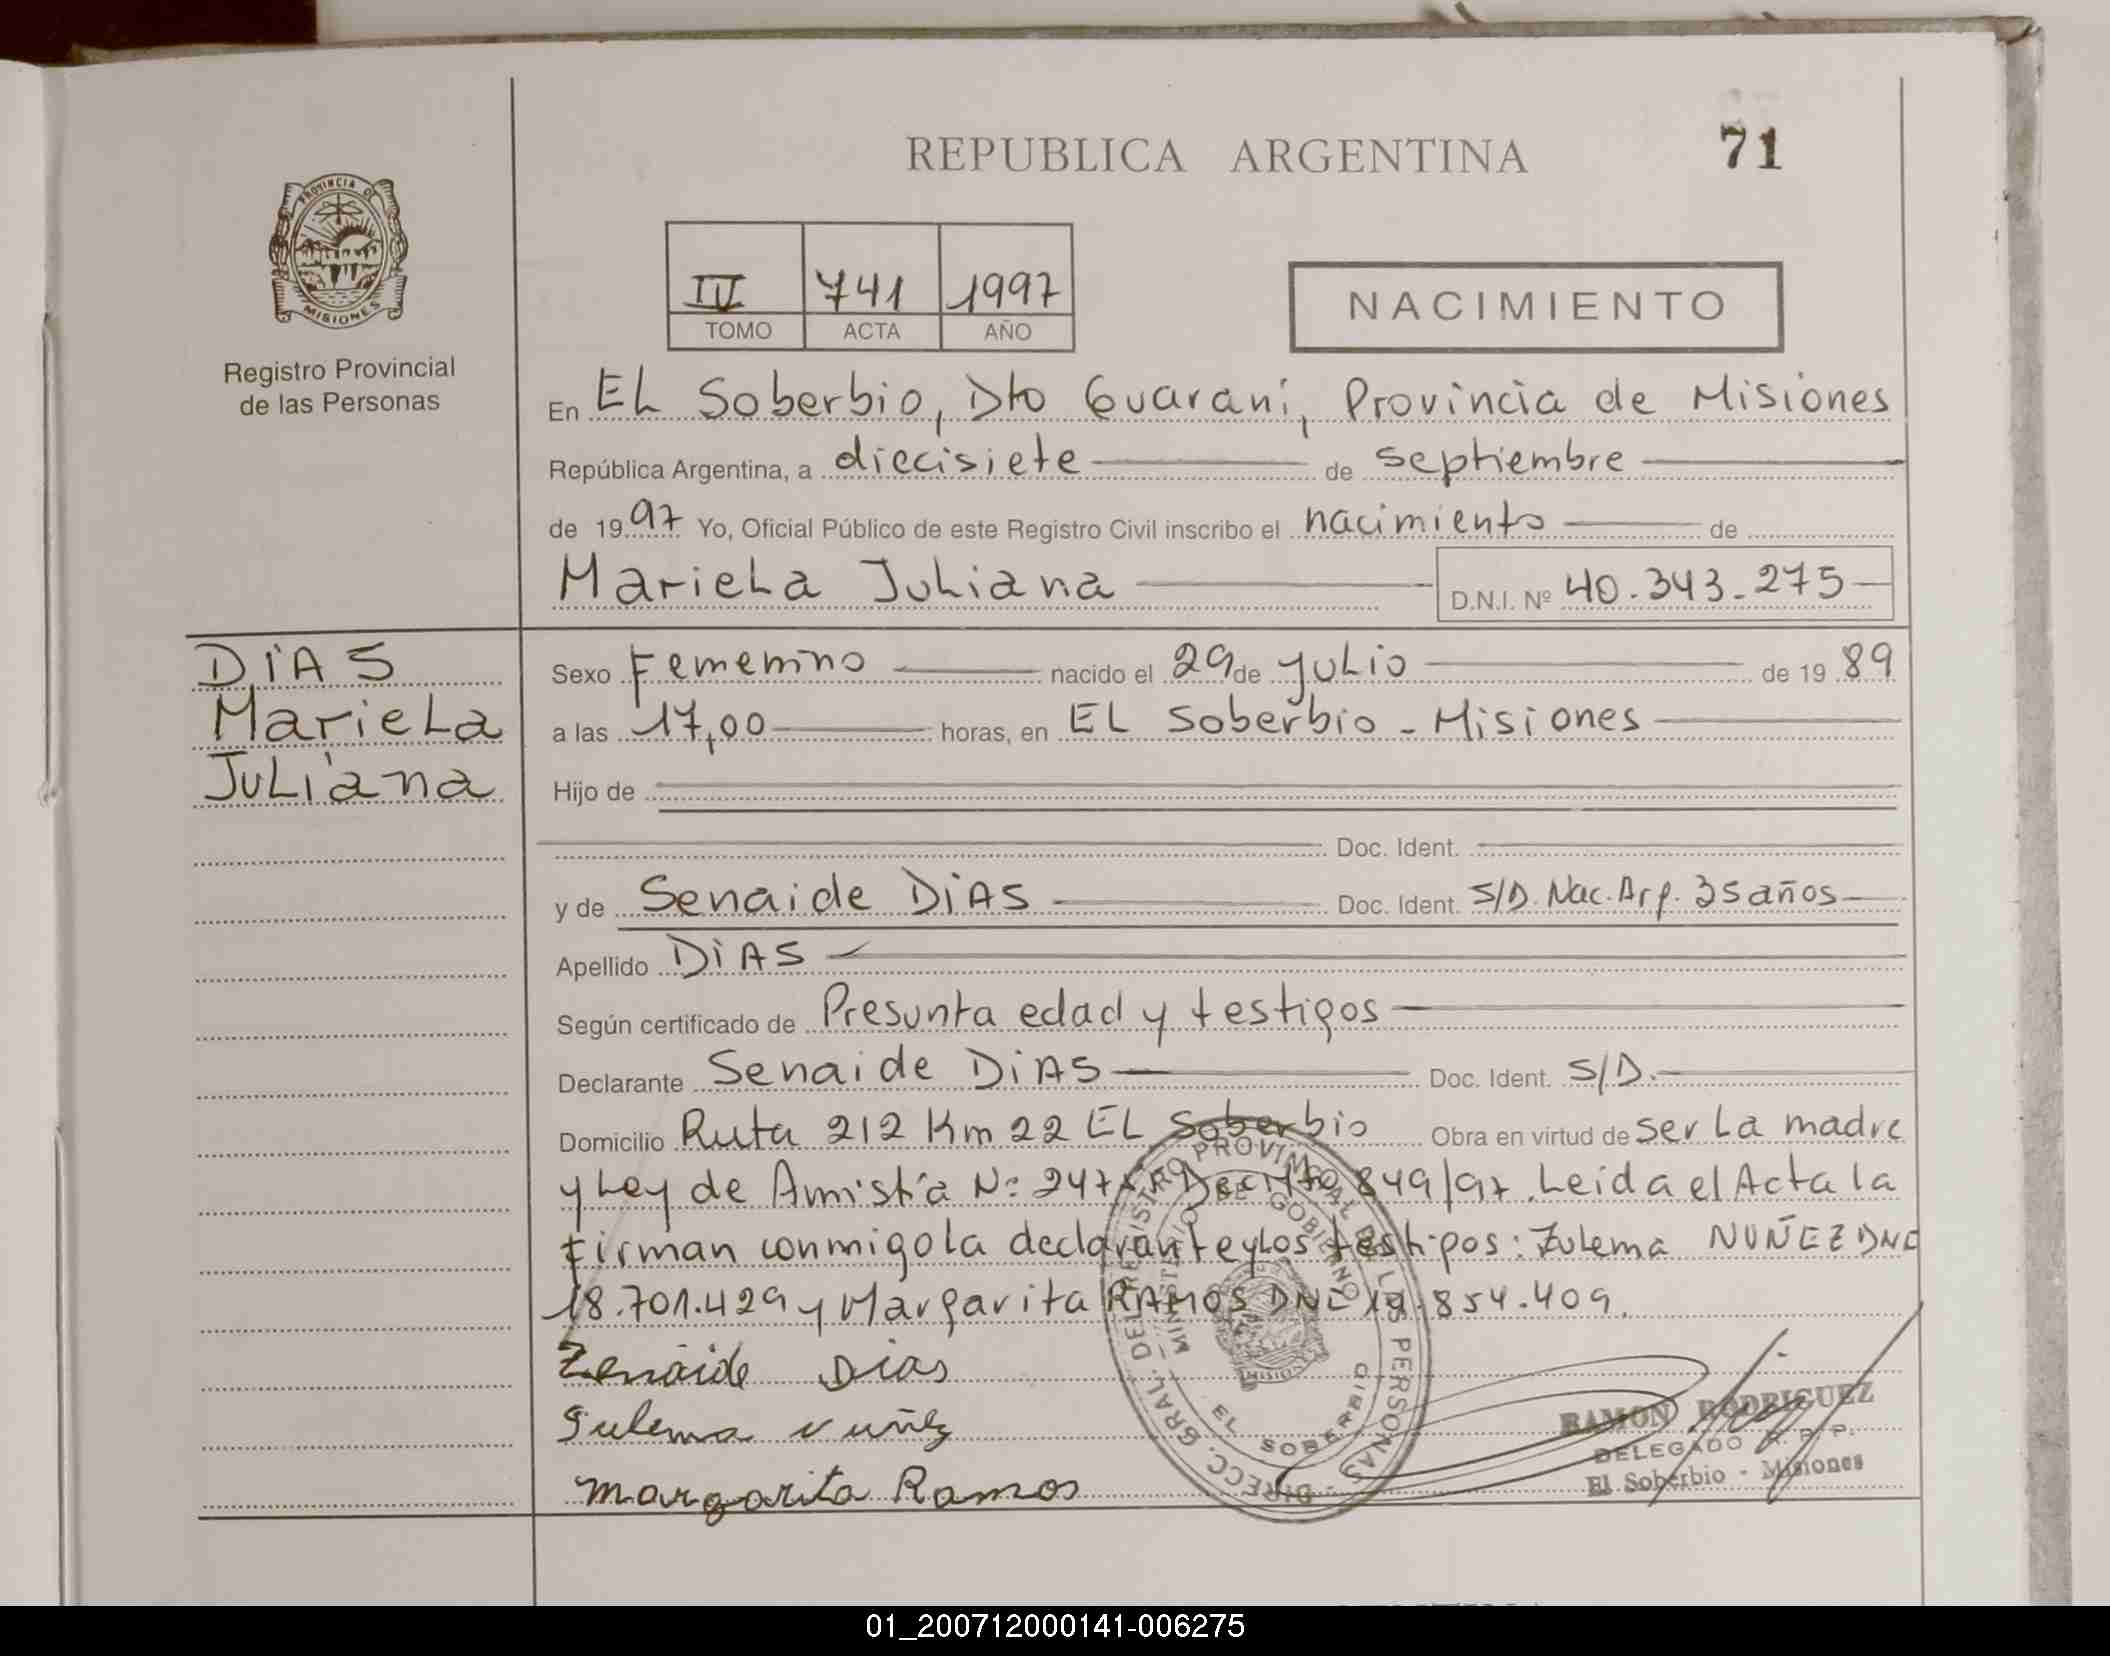 REPUBLICA ARGENTINA
71
PROVINCIA DE
MISIONES
Registro Provincial
de las Personas
IV 741 1997
TOMO ACTA AÑO
NACIMIENTO
En EL Soberbio, Dto Guaraní, Provincia de Misiones
República Argentina, a diecisiete de septiembre
de 1997 Yo, Oficial Público de este Registro Civil inscribo el nacimiento de
Mariela Juliana D.N.I. Nº 40.343.275
DiAS
Mariela
Juliana
Sexo Femenino nacido el 29 de julio de 1989
a las 17,00 horas, en EL Soberbio - Misiones
Hijo de
Doc. Ident.
y de Senaide DiAS Doc. Ident. S/D. Nac. Arg. 35 años
Apellido DiAS
Según certificado de Presunta edad y testigos
Declarante Senaide DiAS Doc. Ident. S/D.
Domicilio Ruta 212 Km 22 EL Soberbio Obra en virtud de ser La madre
y Ley de Amistía Nº 849/97. Leida el Acta la
firman conmigo la declarante y Los testigos: Zulema NUÑEZ DNI
18.701.429 y Margarita RAMOS DNI 19.854.409.
Zenaide Dias
Sulema Nuñez
Margarita Ramos
DIRECC. GRAL. DE REGISTRO PROVINCIAL DE LAS PERSONAS
MINISTERIO DE GOBIERNO
EL SOBERBIO
RAMON RODRIGUEZ
DELEGADO R. P. P.
El Soberbio - Misiones
01_200712000141-006275